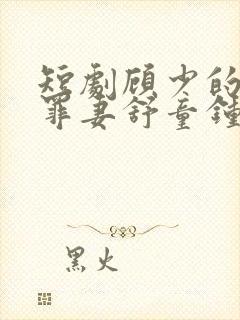 短劇顾少的
罪妻舒童鍾
黑火